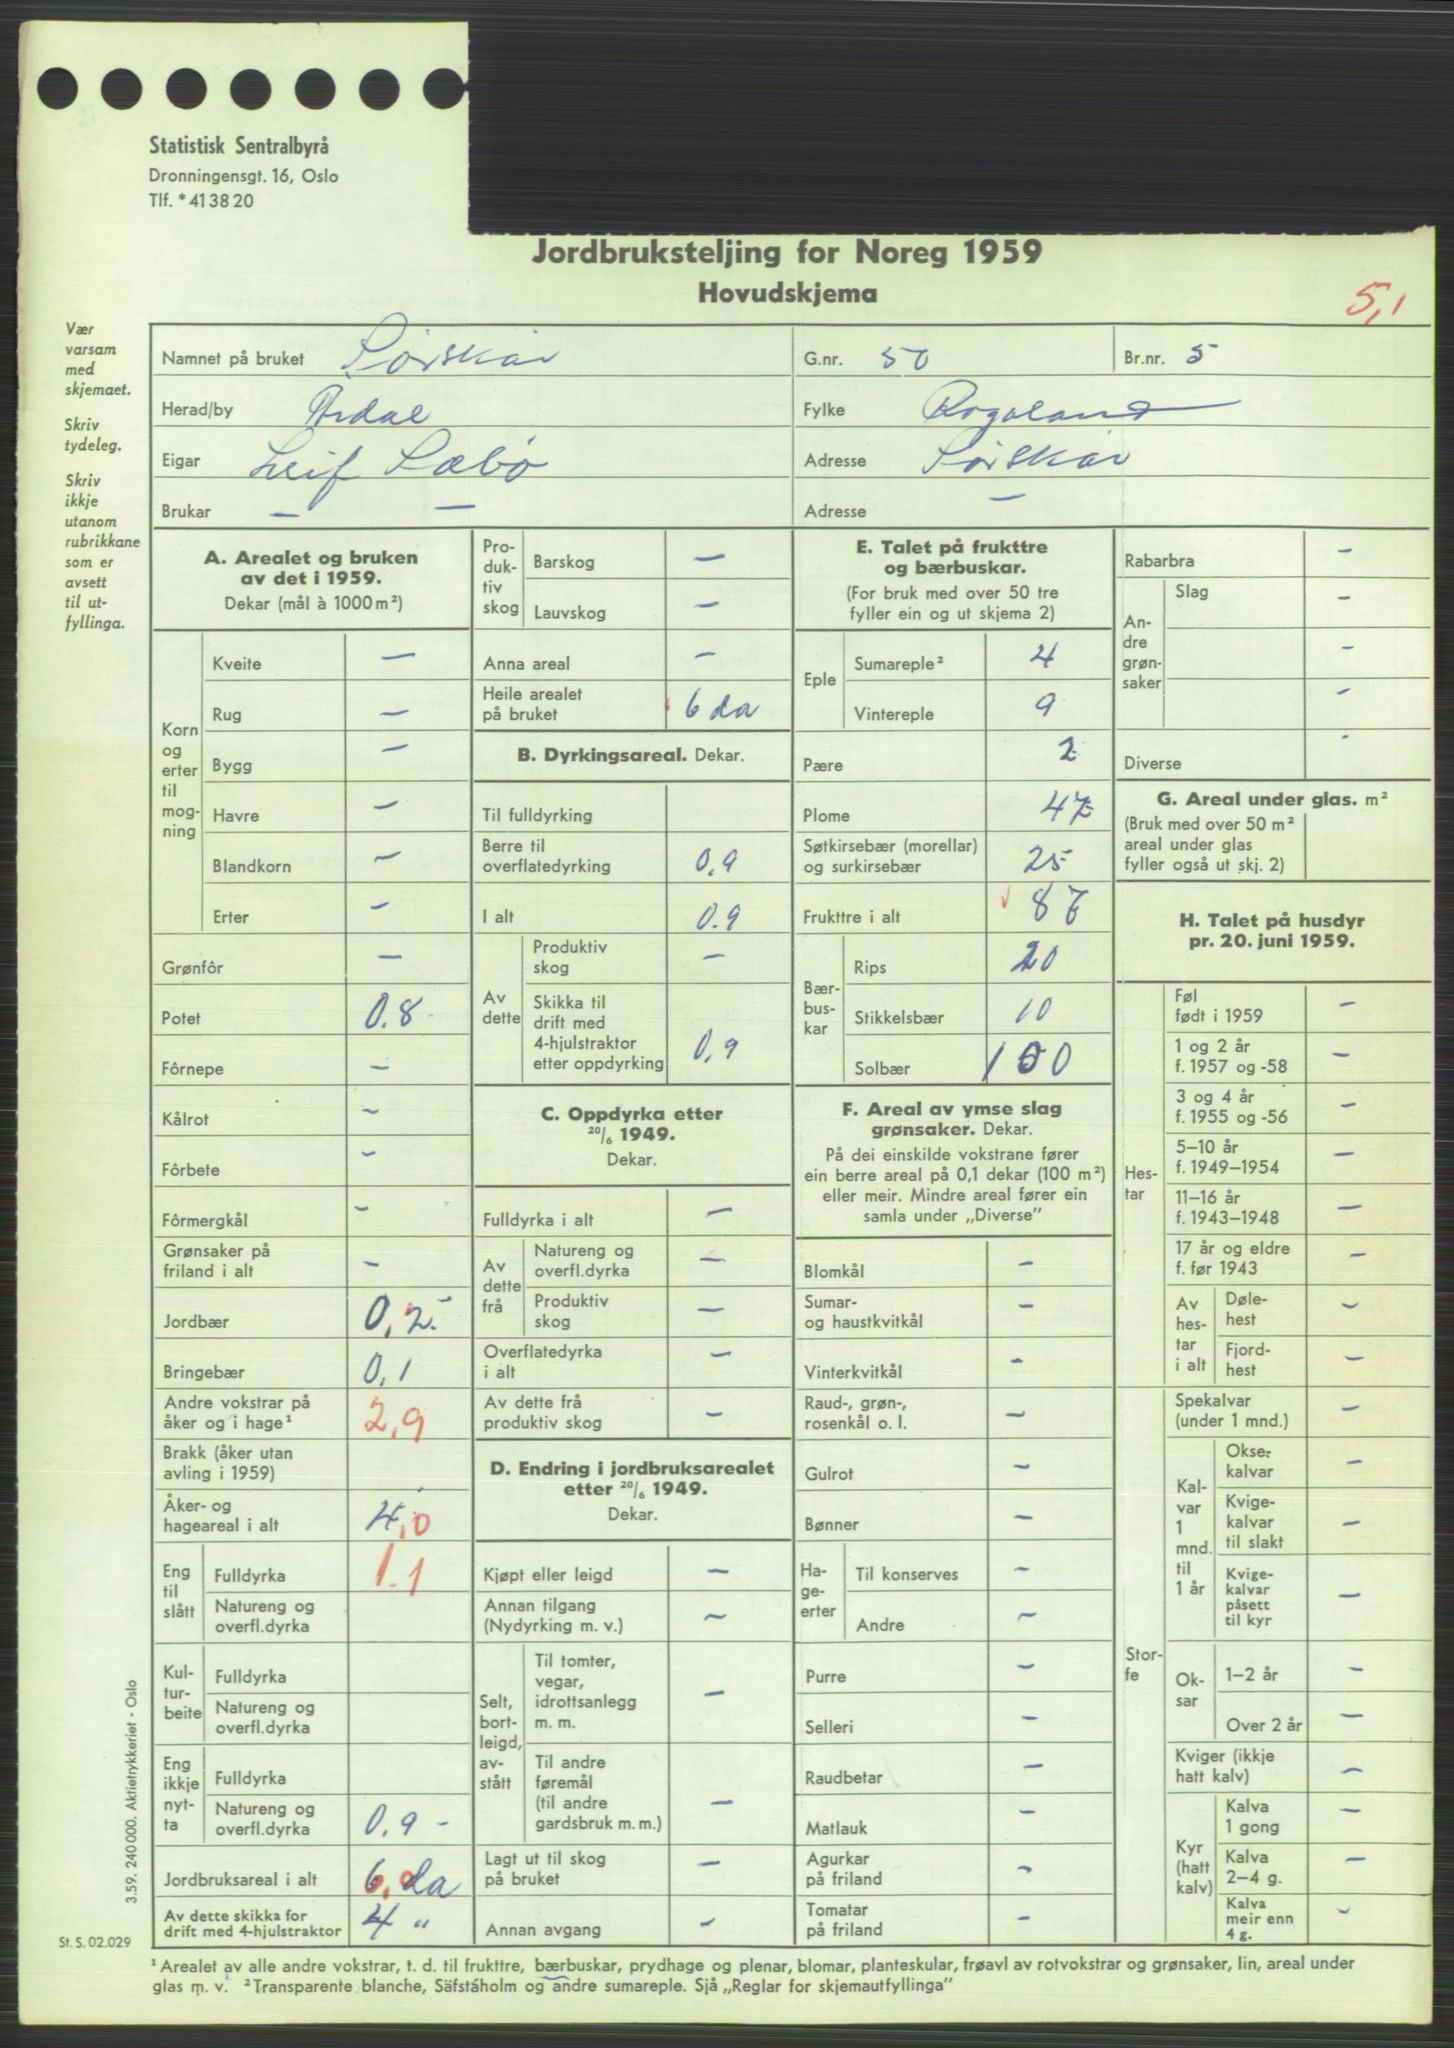 Statistisk Sentralbyrå
Dronningensgt. 16, Oslo
Tlf. * 41 38 20
Jordbruksteljing for Noreg 1959
Hovudskjema
5,1
Vær
varsam
med
skjemaet.
Skriv
tydeleg.
Skriv
ikkje
utanom
rubrikkane
som er
avsett
til ut-
fyllinga.
Namnet på bruket Sörskår G.nr. 50 Br.nr. 5
Herad/by Årdal Fylke Rogaland
Eigar Leif Sæbö Adresse Sörskår
Brukar — — Adresse —
A. Arealet og bruken
av det i 1959.
Dekar (mål à 1000 m²)
Korn
og
erter
til
mog-
ning
Kveite —
Rug —
Bygg —
Havre —
Blandkorn —
Erter —
Grønfôr —
Potet 0.8
Fôrnepe —
Kålrot —
Fôrbete —
Fôrmergkål —
Grønsaker på
friland i alt —
Jordbær 0,2
Bringebær 0,1
Andre vokstrar på
åker og i hage¹ 2,9
Brakk (åker utan
avling i 1959)
Åker- og
hageareal i alt 4,0
Eng
til
slått
Fulldyrka 1.1
Natureng og
overfl.dyrka
Kul-
tur-
beite
Fulldyrka
Natureng og
overfl.dyrka
Eng
ikkje
nyt-
ta
Fulldyrka
Natureng og
overfl.dyrka 0,9 -
Jordbruksareal i alt 6,0 da
Av dette skikka for
drift med 4-hjulstraktor 4 "
Pro-
duk-
tiv
skog
Barskog —
Lauvskog —
Anna areal —
Heile arealet
på bruket 6 da
B. Dyrkingsareal. Dekar.
Til fulldyrking
Berre til
overflatedyrking 0,9
I alt 0.9
Av
dette
Produktiv
skog —
Skikka til
drift med
4-hjulstraktor
etter oppdyrking 0,9
C. Oppdyrka etter
20/6 1949.
Dekar.
Fulldyrka i alt —
Av
dette
frå
Natureng og
overfl.dyrka —
Produktiv
skog —
Overflatedyrka
i alt —
Av dette frå
produktiv skog —
D. Endring i jordbruksarealet
etter 20/6 1949.
Dekar.
Kjøpt eller leigd —
Annan tilgang
(Nydyrking m. v.) —
Selt,
bort-
leigd,
av-
stått
Til tomter,
vegar,
idrottsanlegg
m. m. —
Til andre
føremål
(til andre
gardsbruk m. m.) —
Lagt ut til skog
på bruket —
Annan avgang —
E. Talet på frukttre
og bærbuskar.
(For bruk med over 50 tre
fyller ein og ut skjema 2)
Eple
Sumareple² 4
Vintereple 9
Pære 2
Plome 47
Søtkirsebær (morellar)
og surkirsebær 25
Frukttre i alt 87
Bær-
bus-
kar
Rips 20
Stikkelsbær 10
Solbær 100
F. Areal av ymse slag
grønsaker. Dekar.
På dei einskilde vokstrane fører
ein berre areal på 0,1 dekar (100 m²)
eller meir. Mindre areal fører ein
samla under „Diverse”
Blomkål —
Sumar-
og haustkvitkål —
Vinterkvitkål —
Raud-, grøn-,
rosenkål o. l. —
Gulrot —
Bønner —
Ha-
ge-
erter
Til konserves —
Andre —
Purre —
Selleri —
Raudbetar —
Matlauk —
Agurkar
på friland —
Tomatar
på friland —
Rabarbra —
An-
dre
grøn-
saker
Slag —
—
—
Diverse -
G. Areal under glas. m²
(Bruk med over 50 m²
areal under glas
fyller også ut skj. 2)
H. Talet på husdyr
pr. 20. juni 1959.
Hes-
tar
Føl
født i 1959 —
1 og 2 år
f. 1957 og -58 —
3 og 4 år
f. 1955 og -56 —
5–10 år
f. 1949–1954 —
11–16 år
f. 1943–1948 —
17 år og eldre
f. før 1943 —
Av
hes-
tar
i alt
Døle-
hest —
Fjord-
hest —
Stor-
fe
Spekalvar
(under 1 mnd.) —
Kal-
var
1
mnd.
til
1 år
Okse-
kalvar —
Kvige-
kalvar
til slakt —
Kvige-
kalvar
påsett
til kyr —
Ok-
sar
1–2 år —
Over 2 år —
Kviger (ikkje
hatt kalv) —
Kyr
(hatt
kalv)
Kalva
1 gong —
Kalva
2–4 g. —
Kalva
meir enn
4 g. —
3.59. 240 000. Aktietrykkeriet - Oslo
St. S. 02.029
¹ Arealet av alle andre vokstrar, t. d. til frukttre, bærbuskar, prydhage og plenar, blomar, planteskular, frøavl av rotvokstrar og grønsaker, lin, areal under
glas m. v. ² Transparente blanche, Säfstáholm og andre sumareple. Sjå „Reglar for skjemautfyllinga”